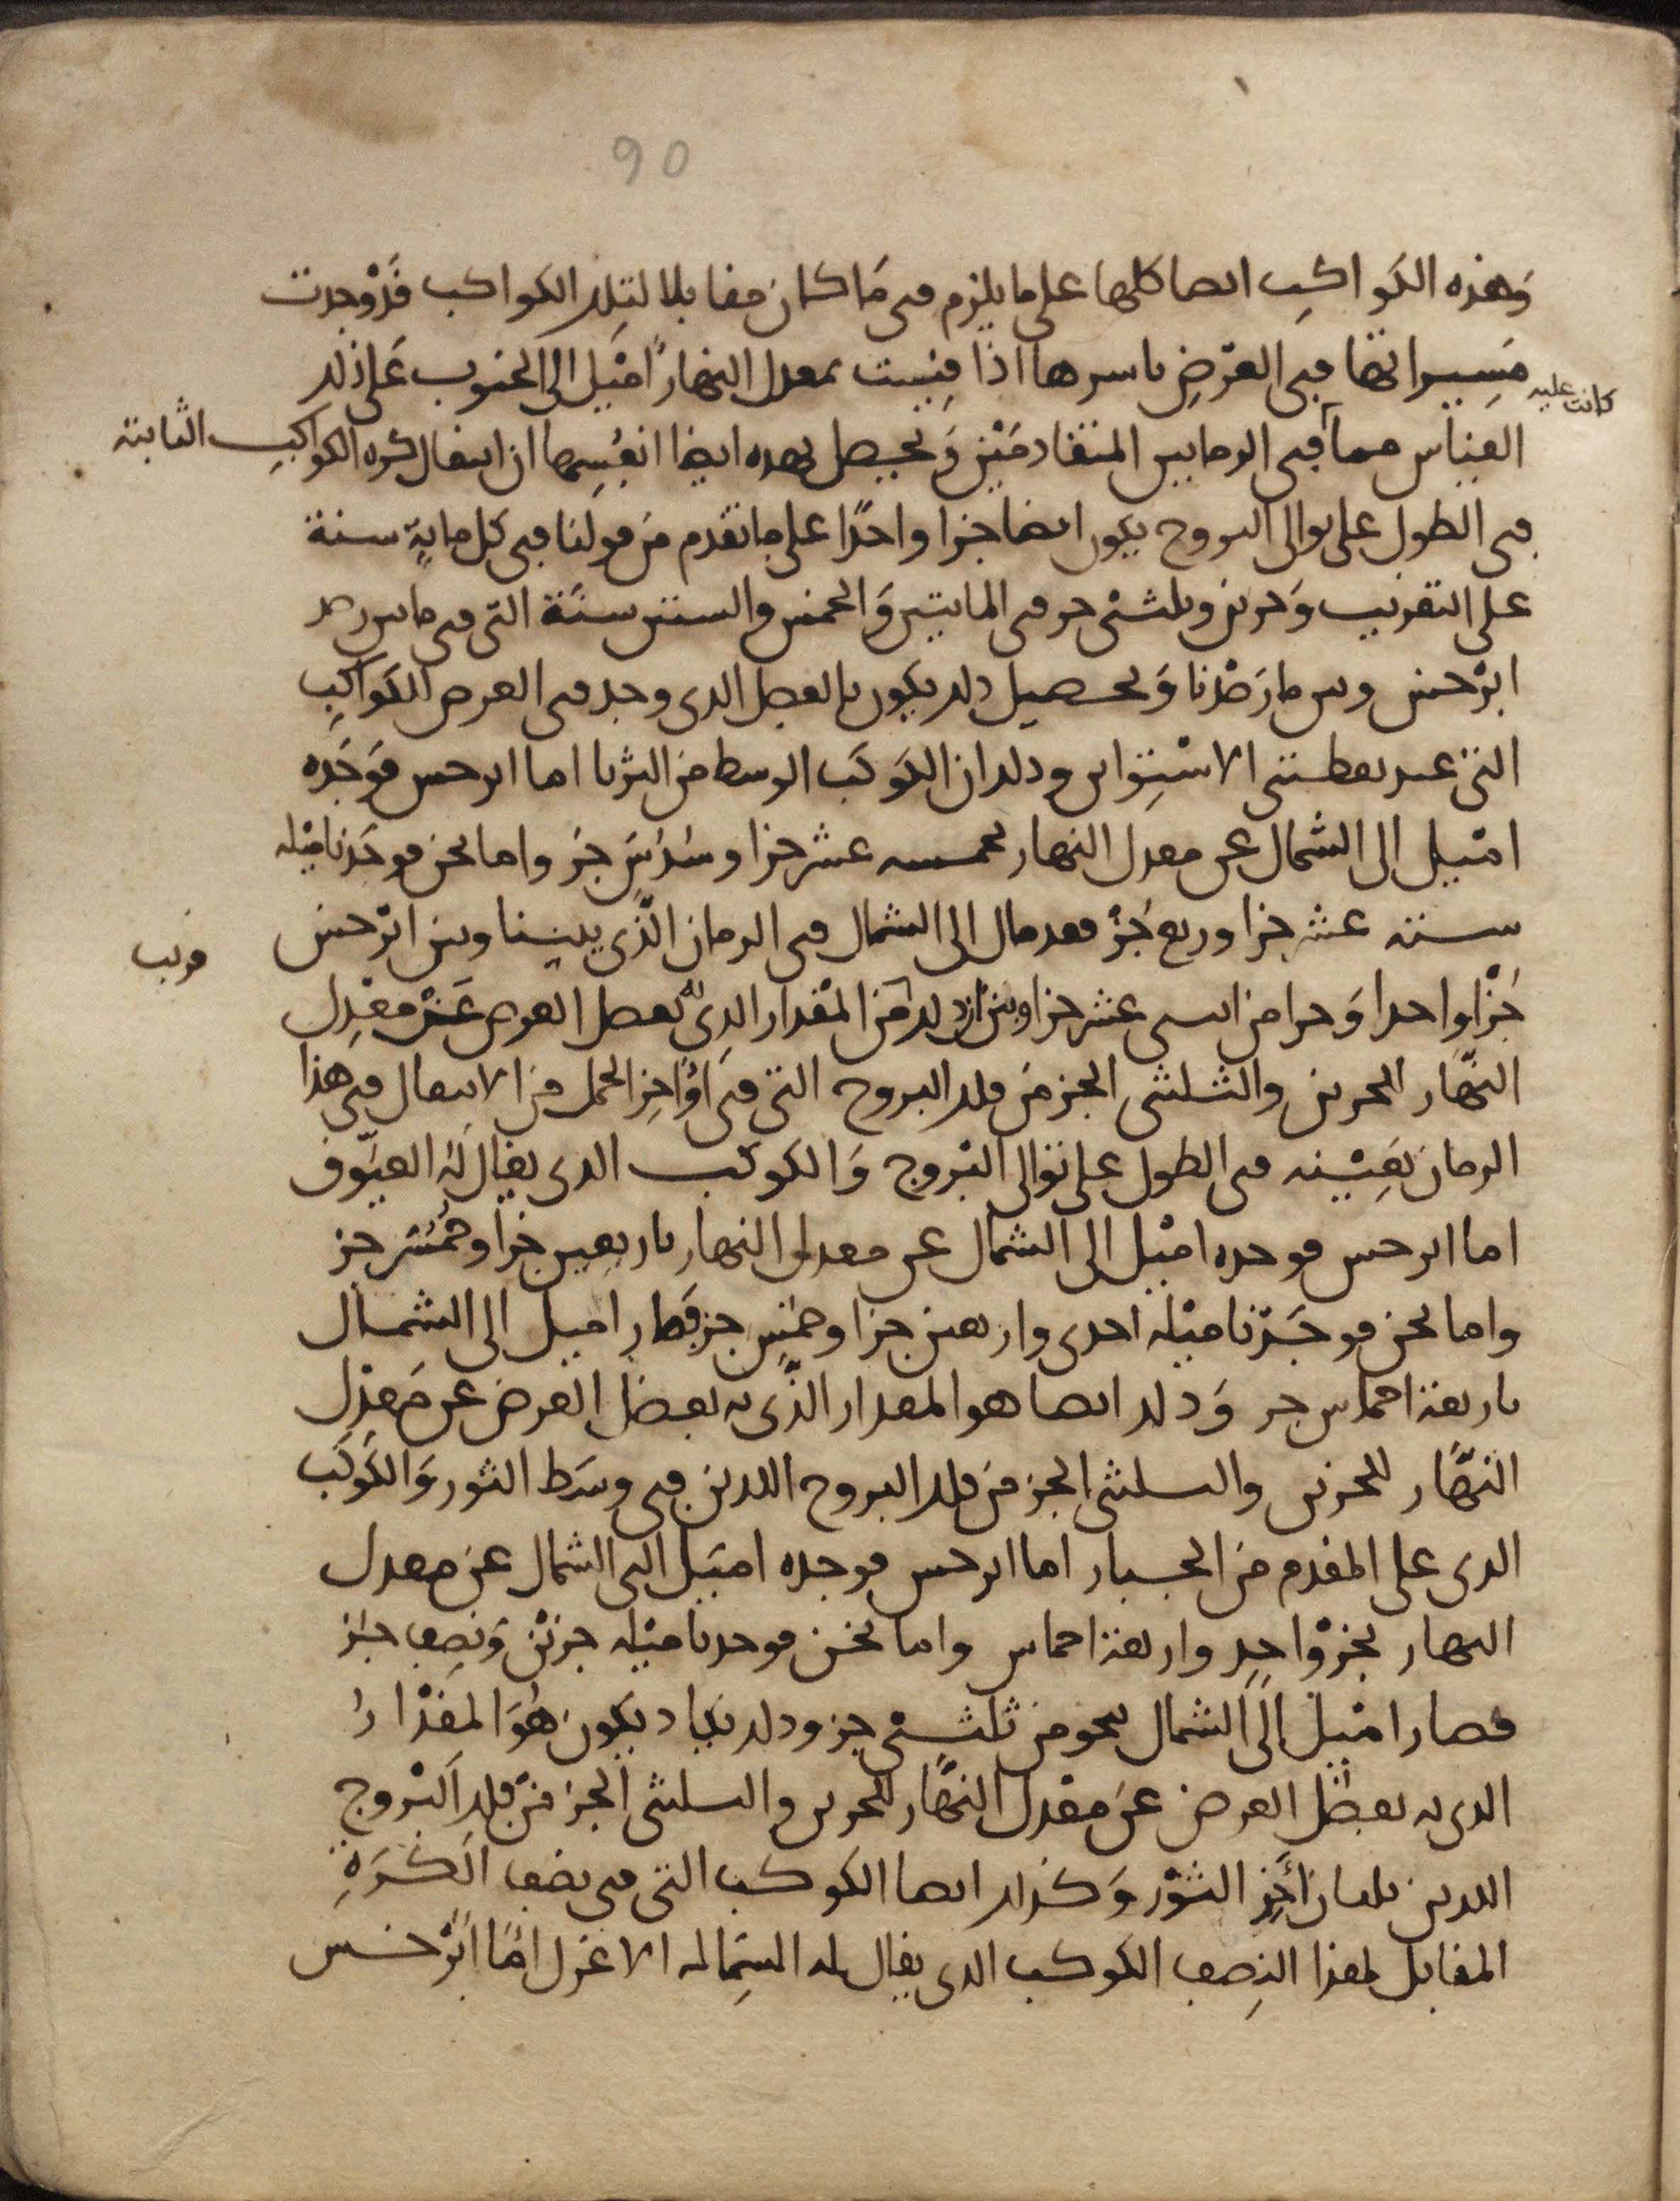 90
وهذه الكواكب ايضا كلها على ما يلزم في ما كان مقابلا لتلك الكواكب قد وجدت
مسيراتها في العرض باسرها اذا قيست بمعدل النهار اميل الى الجنوب على ذلك
كانت عليه
القياس مما في الزمانين المتقادمين ويحصل بهذه ايضا انفسها ان انتقال كرة الكواكب الثابتة
في الطول على توالي البروج يكون ايضا جزا واحدا على ما تقدم من قولنا في كل ماية سنة
على التقريب وجزين وثلثي جز في المايتين والخمس والستين سنة التي في ما بين رصد
ابرخس وبين ما رصدنا وتحصيل ذلك يكون بالفصل الذي وجد في العرض للكواكب
التي عند نقطتي الاستواين وذلك ان الكوكب الوسط من الثريا اما ابرخس فوجده
اميل الى الشمال عن معدل النهار بخمسه عشر جزا وسدس جز واما نحن فوجدنا ميله
ستة عشر جزا وربع جز فقد مال الى الشمال في الزمان الذي بيننا وبين ابرخس
قريب
جزا واحدا وجزا من اثني عشر جزا وبين ان ذلك من المقدار الذي له يفضل العرض عن معدل
النهار الجزين والثلثي الجز من فلك البروج التي في اواخر الحمل من الانتقال في هذا
الزمان بعينه في الطول على توالي البروج والكوكب الذي يقال له العيوق
اما ابرخس فوجده اميل الى الشمال عن معدل النهار باربعين جزا وخمسي جز
واما نحن فوجدنا ميله احدى واربعين جزا وخمس جز فصار اميل الى الشمال
باربعة اخماس جز وذلك ايضا هو المقدار الذي به يفضل العرض عن معدل
النهار للجزين والثلثي الجز من فلك البروج اللذين في وسط الثور والكوكب
الذي على المقدم من الجبار اما ابرخس فوجده اميل الى الشمال عن معدل
النهار بجز واحد واربعة اخماس واما نحن فوجدنا ميله جزين ونصف جز
فصار اميل الى الشمال بنحو من ثلثي جز وذلك يكاد يكون هو المقدارا
الذي به يفضل العرض عن معدل النهار للجزين والثلثي الجز من فلك البروج
اللذين يليان اخر الثور وكذلك ايضا الكوكب التي في نصف الكرة
المقابل لهذا النصف الكوكب الذي يقال له السماك الاعزل اما ابرخس